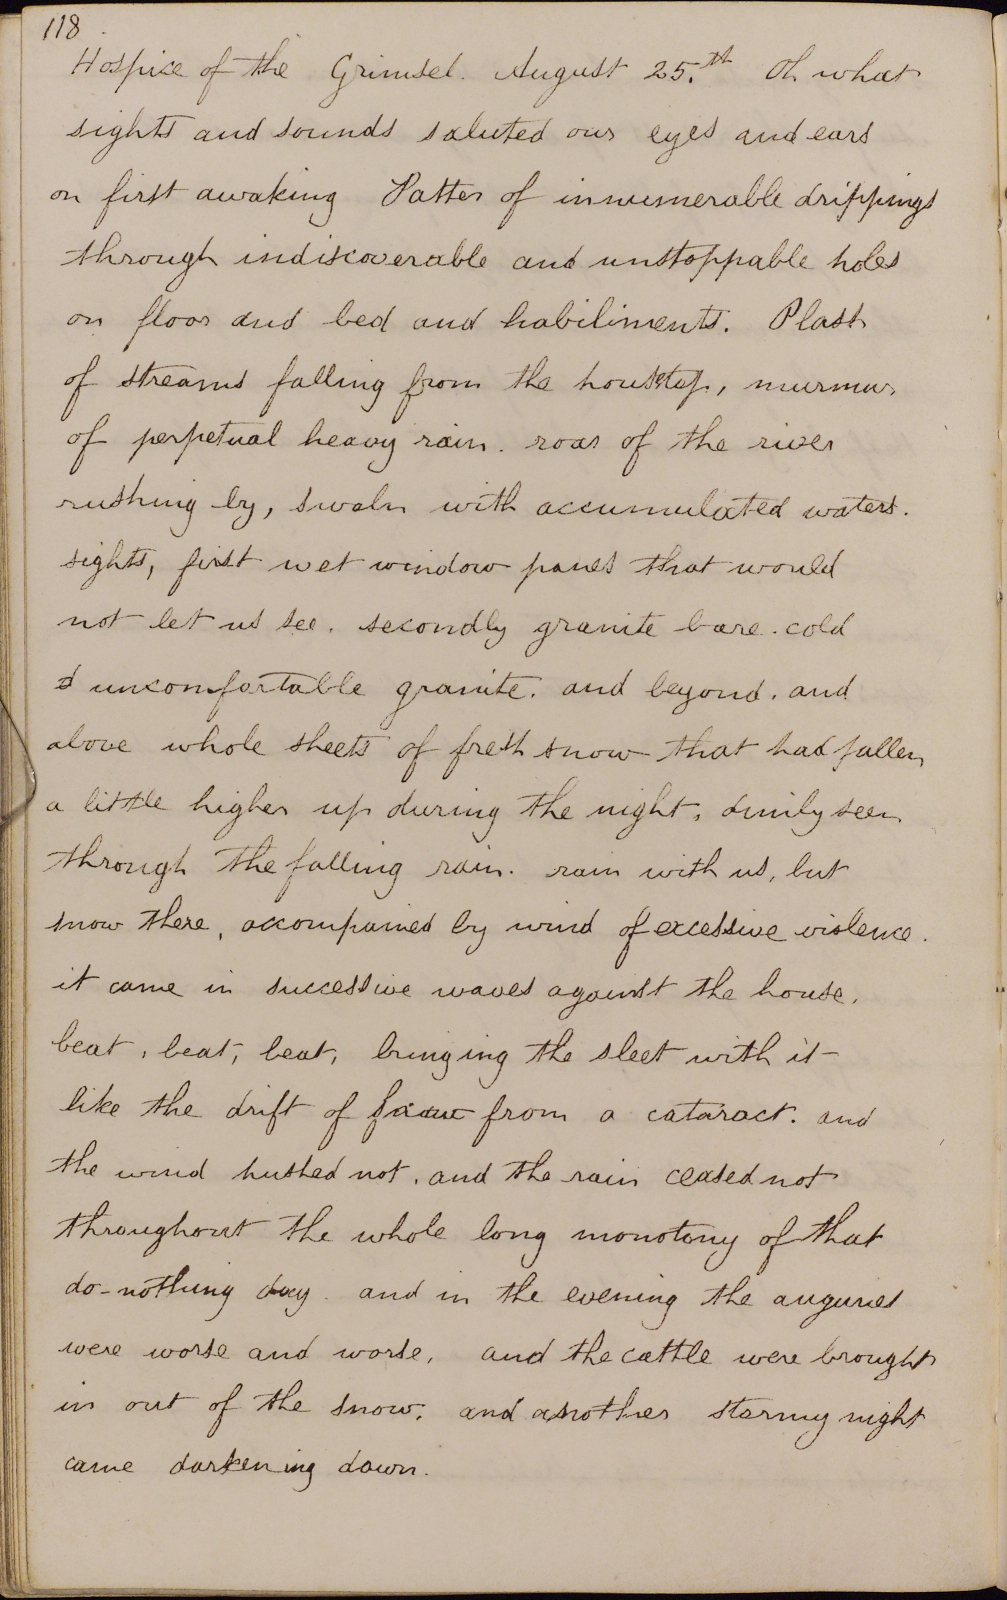 118
Hospice of the Grimsel. August 25.th Oh what
sights and sounds saluted our eyes and ears
on first awaking Patter of innumerable drippings
through indiscoverable and unstoppable holes
on floor and bed and habiliments. Plash
of streams falling from the housetop, murmur
of perpetual heavy rain. roar of the river
rushing by, swoln with accumulated waters.
sights, first wet window panes that would
not let us see. secondly granite bare. cold
& uncomfortable granite. and beyond. and
above whole sheets of fresh snow that had fallen
a little higher up during the night, dimly seen
through the falling rain. rain with us, but
snow there, accompanied by wind of excessive violence.
it came in successive waves against the house,
beat, beat, beat, bringing the sleet with it
like the drift of from a cataract. and
the wind hushed not, and the rain ceased not
throughout the whole long monotony of that
do-nothing day. and in the evening the auguries
were worse and worse, and the cattle were brought
in out of the snow. and another stormy night
came darkening down.